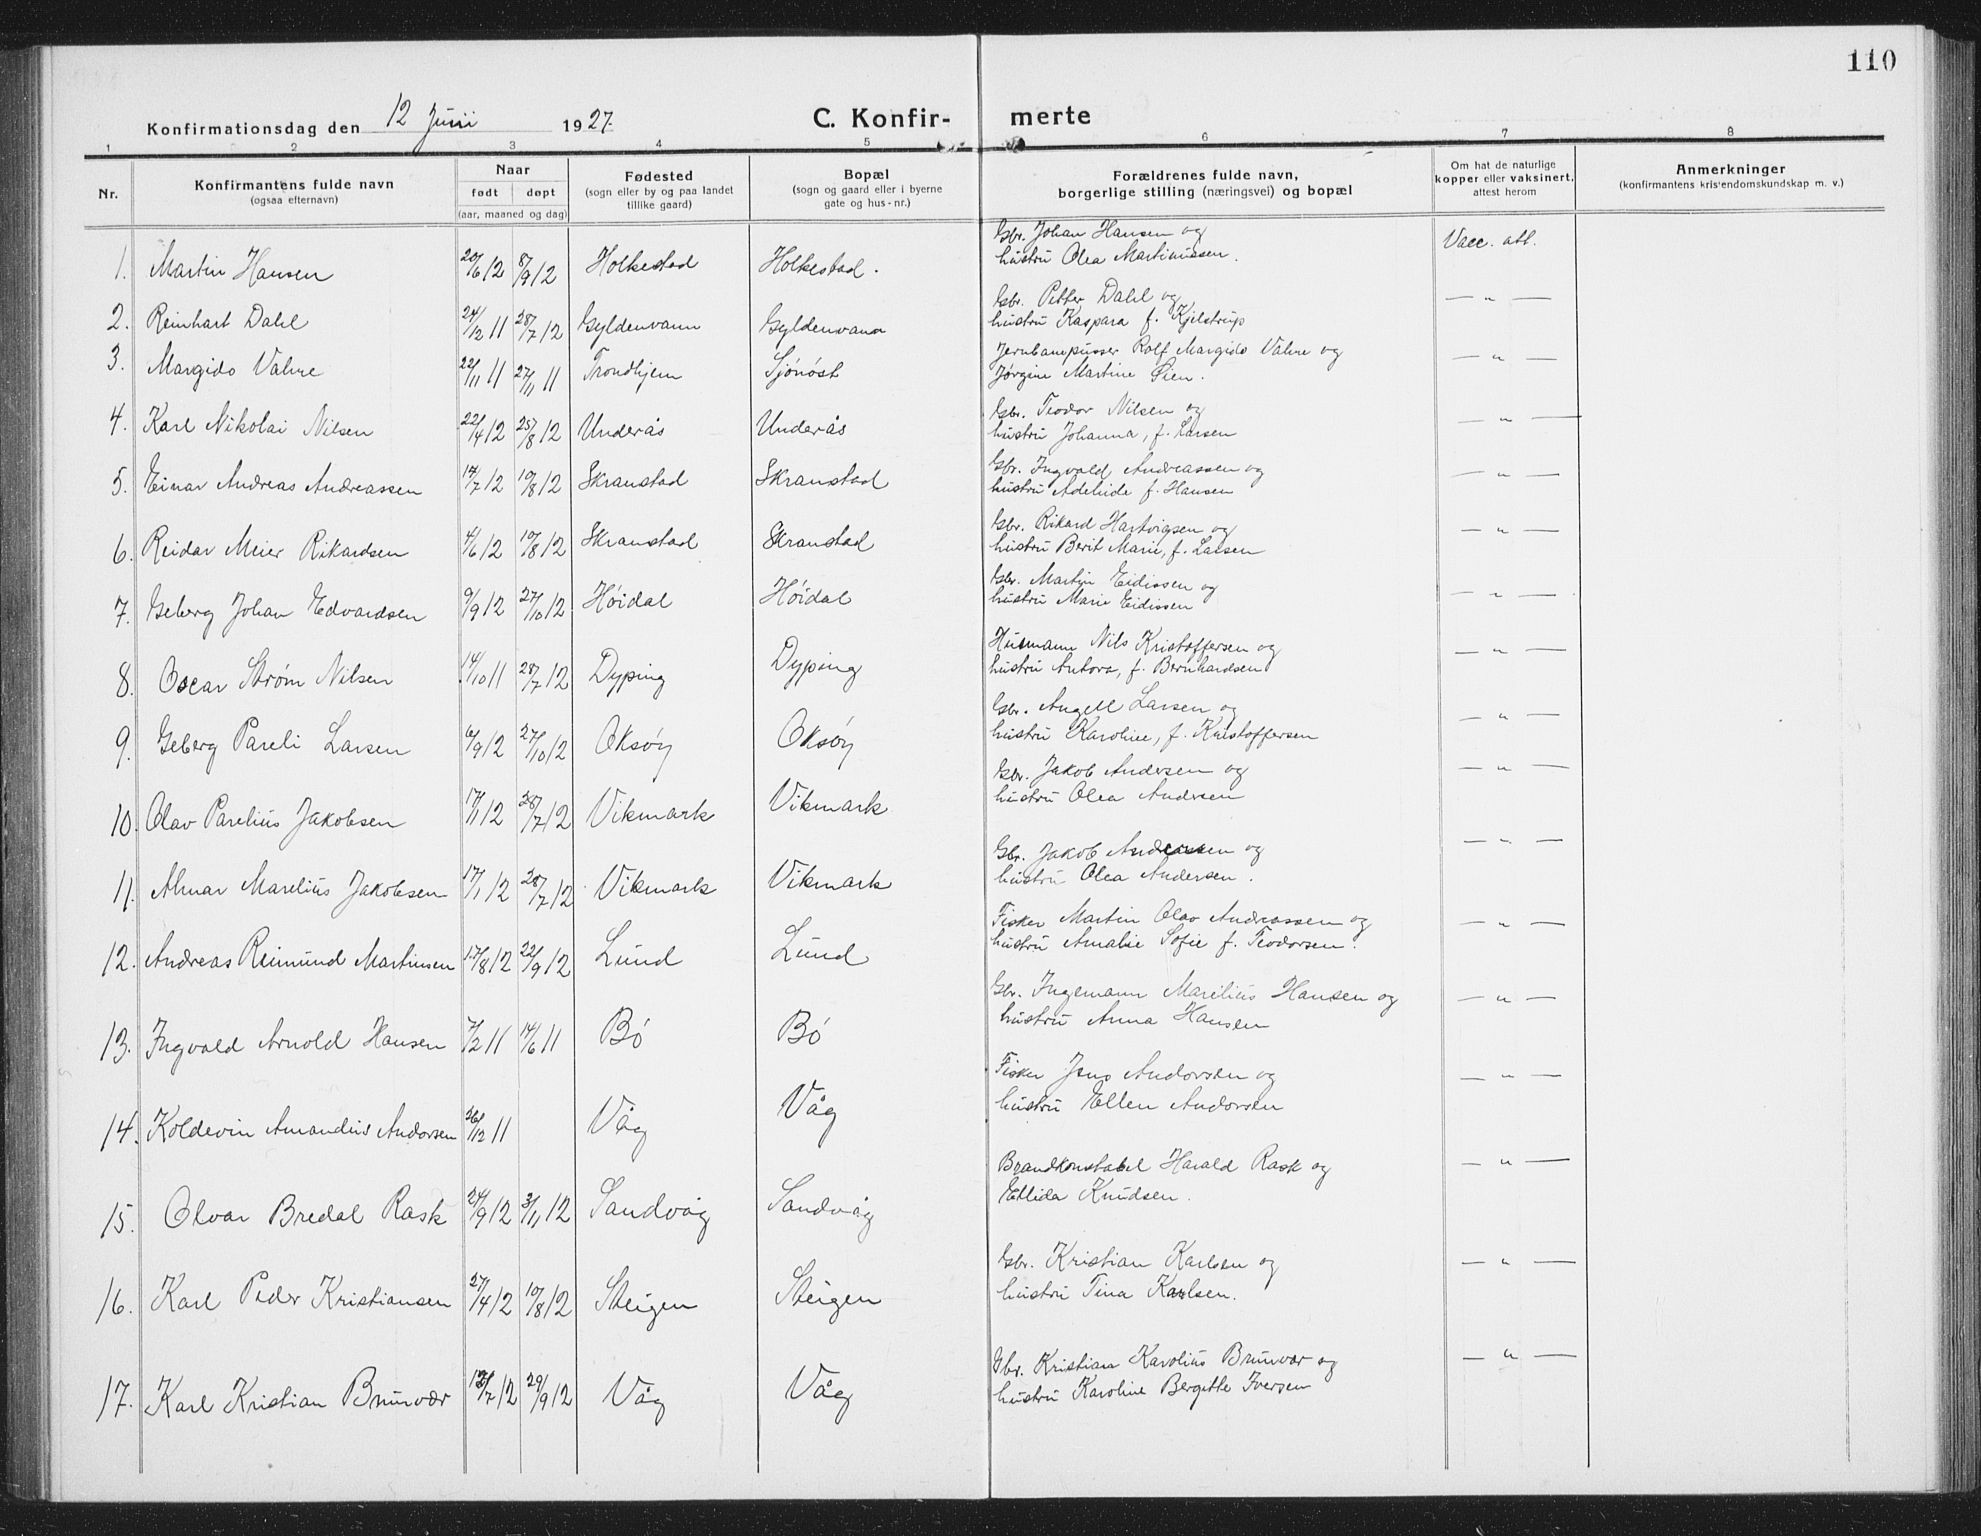 110
Konfirmationsdag den 12 Juni 1927.
C. Konfir- merte
1 2 3 4 5 6 7 8
Nr.
Konfirmantens fulde navn
(ogsaa efternavn)
Naar
født døpt
(aar, maaned og dag)
Fødested
(sogn eller by og paa landet
tillike gaard)
Bopæl
(sogn og gaard eller i byerne
gate og hus-nr.)
Forældrenes fulde navn,
borgerlige stilling (næringsvei) og bopæl
Om hat de naturlige
kopper eller vaksinert,
attest herom
Anmerkninger
(konfirmantens kristendomskundskap m. v.)
Gbr. Johan Hansen og
1. Martin Hansen 20/6 12 8/9 12 Holkestad Holkestad. hustru Olea Martinussen. Vacc. att.
Gbr. Petter Dahl og
2. Reinhart Dahl 24/12 11 28/7 12 Gyldenvann Gyldenvann hustru Kaspara f. Kjelstrup — " —
Jernbanepusser Rolf Margido Valve og
3. Margido Valve 22/11 11 27/11 11 Trondhjem Sjönöst Jørgine Martine Øien. — " —
Gbr. Teodor Nilsen og
4. Karl Nikolai Nilsen 22/4 12 25/8 12 Underås Underås hustru Johanna, f. Larsen — " —
Gbr. Ingvald Andreassen og
5. Einar Andreas Andreassen 14/7 12 10/8 12 Skranstad Skranstad hustru Adelude f. Hansen — " —
Gbr. Rikard Hartvigsen og
6. Reidar Meier Rikardsen 4/6 12 10/8 12 Skranstad Skranstad hustru Berit Marie, f. Larsen — " —
Gbr. Martin Eidissen og
7. Geberg Johan Edvardsen 9/9 12 27/10 12 Høidal Høidal hustru Marie Eidissen — " —
Husmann Nils Kristoffersen og
8. Oscar Strøm Nilsen 14/10 11 28/7 12 Dyping Dyping hustru Antora, f. Bernhardsen — " —
Gbr. Angell Larsen og
9. Geberg Pareli Larsen 6/9 12 27/10 12 Oksøy Oksøy hustru Karoline, f. Kristoffersen — " —
Gbr. Jakob Andersen og
10. Olav Parelius Jakobsen 17/1 12 28/7 12 Vikmark Vikmark hustru Olea Andersen — " —
Gbr. Jakob Andersen og
11. Almar Marelius Jakobsen 17/1 12 28/7 12 Vikmark Vikmark hustru Olea Andersen. — " —
Fisker Martin Olav Andreassen og
12. Andreas Reimund Martinsen 17/8 12 22/9 12 Lund Lund hustru Amalie Sofie f. Teodorsen. — " —
Gbr. Ingemann Marelius Hansen og
13. Ingvald Arnold Hansen 7/2 11 14/6 11 Bö Bö hustru Anna Hansen — " —
Fisker Jens Andorsen og
14. Koldevin Amandus Andorsen 26/12 11 Våg Våg hustru Ellen Andorsen — " —
Brandkonstabel Harald Rask og
15. Olvar Bredal Rask 24/9 12 3/11 12 Sandvåg Sandvåg Ellida Knudsen. — " —
Gbr. Kristian Karlsen og
16. Karl Peder Kristiansen 27/4 12 10/8 12 Steigen Steigen hustru Tina Karlsen. — " —
Gbr. Kristian Karolius Brunvær og
17. Karl Kristian Brunvær /7 12 29/9 12 Våg Våg hustru Karoline Bergitte Iversen — " —